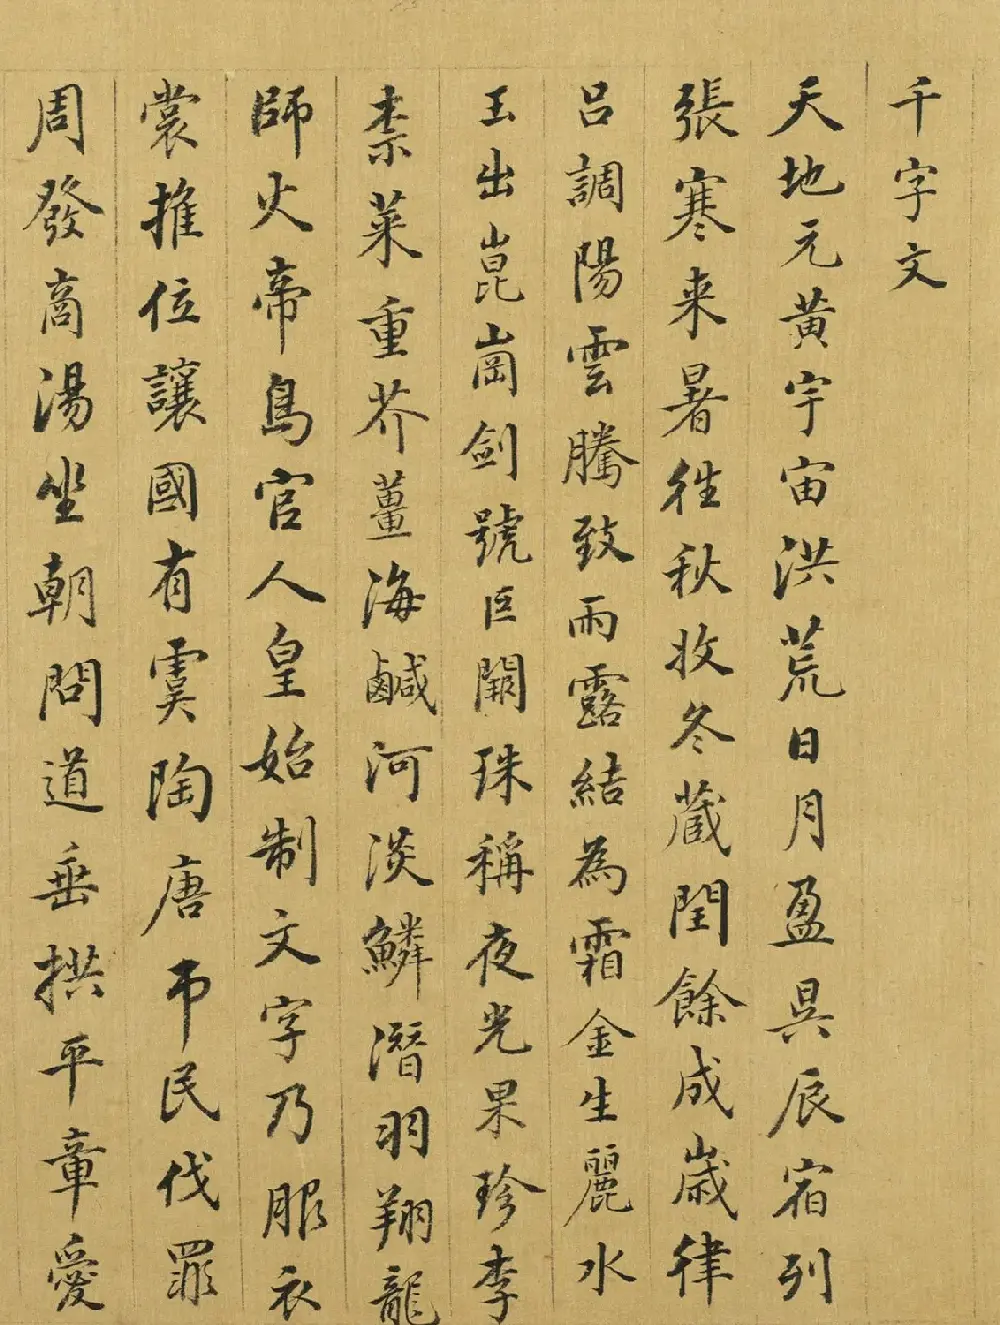 千字文
天地元黃宇宙洪荒日月盈昃辰宿列
張寒来暑往秋收冬蔵閏餘成歲律
呂調陽雲騰致雨露結為霜金生麗水
玉出崑崗劍號巨闕珠稱夜光果珍李
柰菜重芥薑海鹹河淡鱗潛羽翔龍
師火帝鳥官人皇始制文字乃服衣
裳推位讓國有虞陶唐弔民伐罪
周發商湯坐朝問道垂拱平章愛